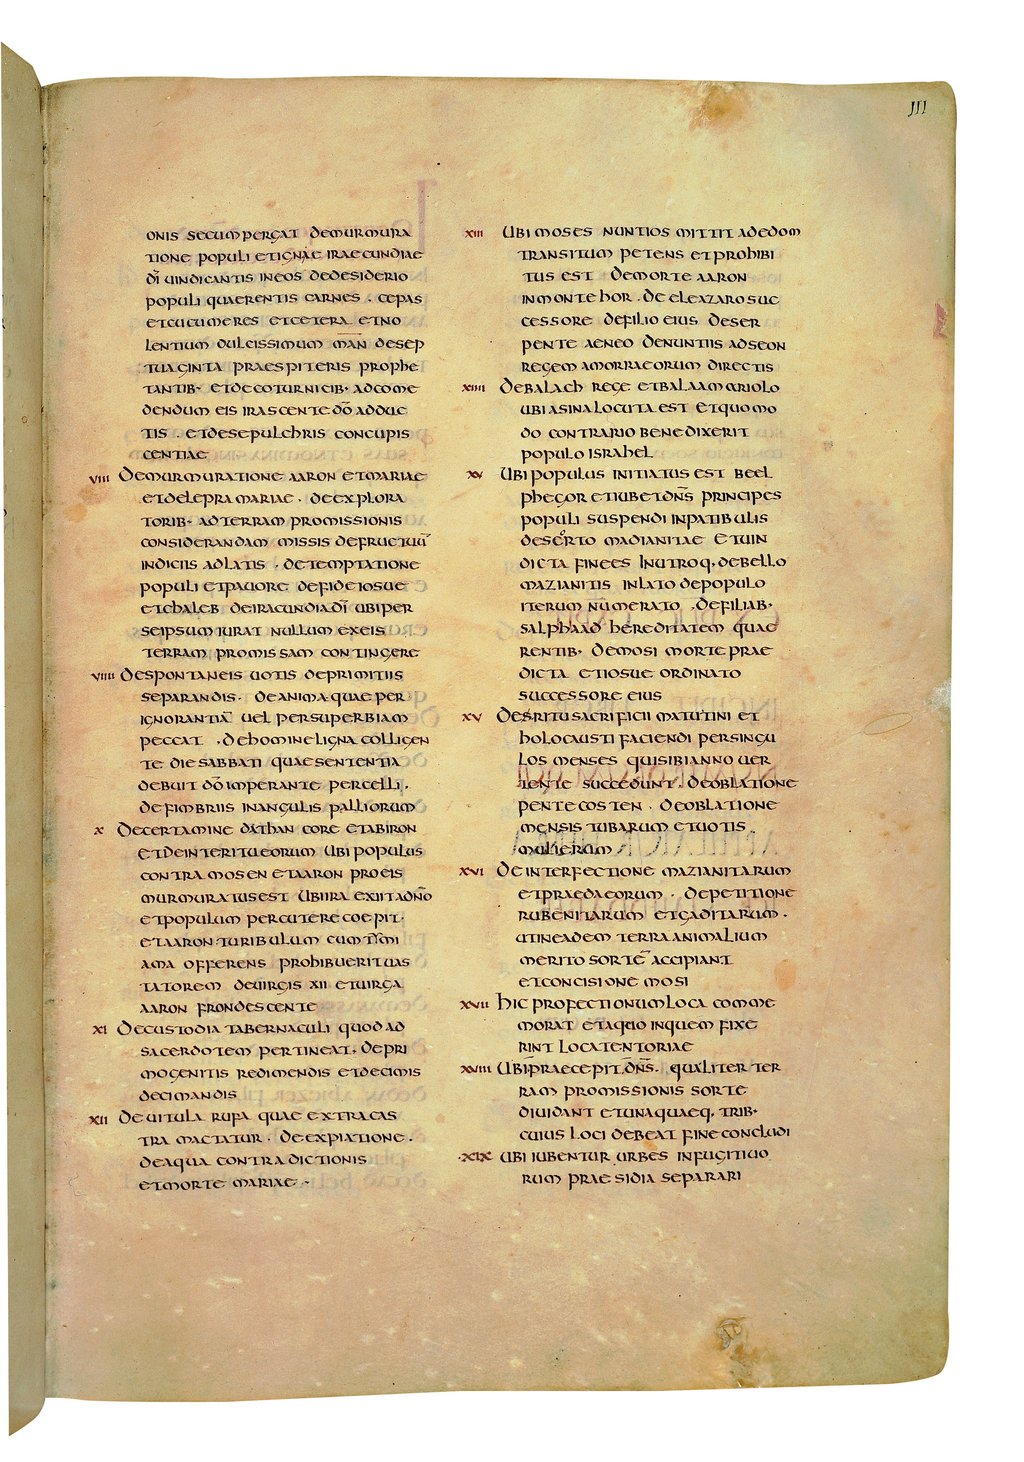 III
onis secum pergat de murmura
tione populi et ignae irae cundiae
dī uindicantis in eos de desiderio
populi quaerentis carnes . cepas
et cucumeres et cetera et no
lentium dulcissimum man de sep
tuaginta praespiteris prophe
tantib· et de coturnicib· ad come
dendum eis irascente dō adduc
tis . et de sepulchris concupis
centiae
VIII De murmuratione aaron et mariae
et de lepra mariae . de explora
torib· ad terram promissionis
considerandam missis de fructuū
indiciis adlatis . de temptatione
populi et pauore de fide iosue
et chaleb de iracundia dī ubi per
se ipsum iurat nullum ex eis
terram promissam contingere
VIIII De spontaneis uotis de primitiis
separandis . de anima quae per
ignorantiā uel per superbiam
peccat . de homine ligna colligen
te die sabbati quae sententia
debuit dō imperante percelli .
de fimbriis in angulis palliorum
X De certamine dathan core et abiron
et de interitu eorum ubi populus
contra mosen et aaron pro eis
murmuratus est ubi ira exiit a dnō
et populum percutere coepit ·
et aaron turibulum cum timi
ama offerens prohibuerit uas
tatorem de uirgis XII et uirga
aaron frondescente
XI De custodia tabernaculi quod ad
sacerdotem pertineat . de pri
mogenitis redimendis et decimis
decimandis
XII De uitula rufa quae extra cas
tra mactatur . de expiatione .
de aqua contradictionis
et morte mariae ·
XIII Ubi moses nuntios mittit ad edom
transitum petens et prohibi
tus est de morte aaron
in monte hor . de eleazaro suc
cessore de filio eius de ser
pente aeneo de nuntiis ad seon
regem amorraeorum directis
XIIII De balach rege et balaam ariolo
ubi asina locuta est et quomo
do contrario benedixerit
populo israhel
XV Ubi populus initiatus est beel
phegor et iubet dns̄ principes
populi suspendi in patibulis
de serto madianitae et uin
dicta finees in utroq. de bello
mazianitis inlato de populo
iterum numerato . de filiab·
salphaad hereditatem quae
rentib· de mosi morte prae
dicta et iosue ordinato
successore eius
XV De ritu sacrificii matutini et
holocausti faciendi per singu
los menses quisibi anno uer
tente succedunt . de oblatione
pentecosten . de oblatione
mensis tubarum et uotis .
mulierum
XVI De interfectione mazianitarum
et praeda eorum . de petitione
rubenitarum et gaditarum .
ut in eadem terra animalium
merito sortē accipiant
et concisione mosi
XVII Hic profectionum loca comme
morat et a quo in quem fixe
rint loca tentoriae
XVIII Ubi praecepit dn̄s . qualiter ter
ram promissionis sorte
diuidant et unaquaeq. trib·
cuius loci debeat fine concludi
·XIX Ubi iubentur urbes in fugitiuo
rum praesidia separari